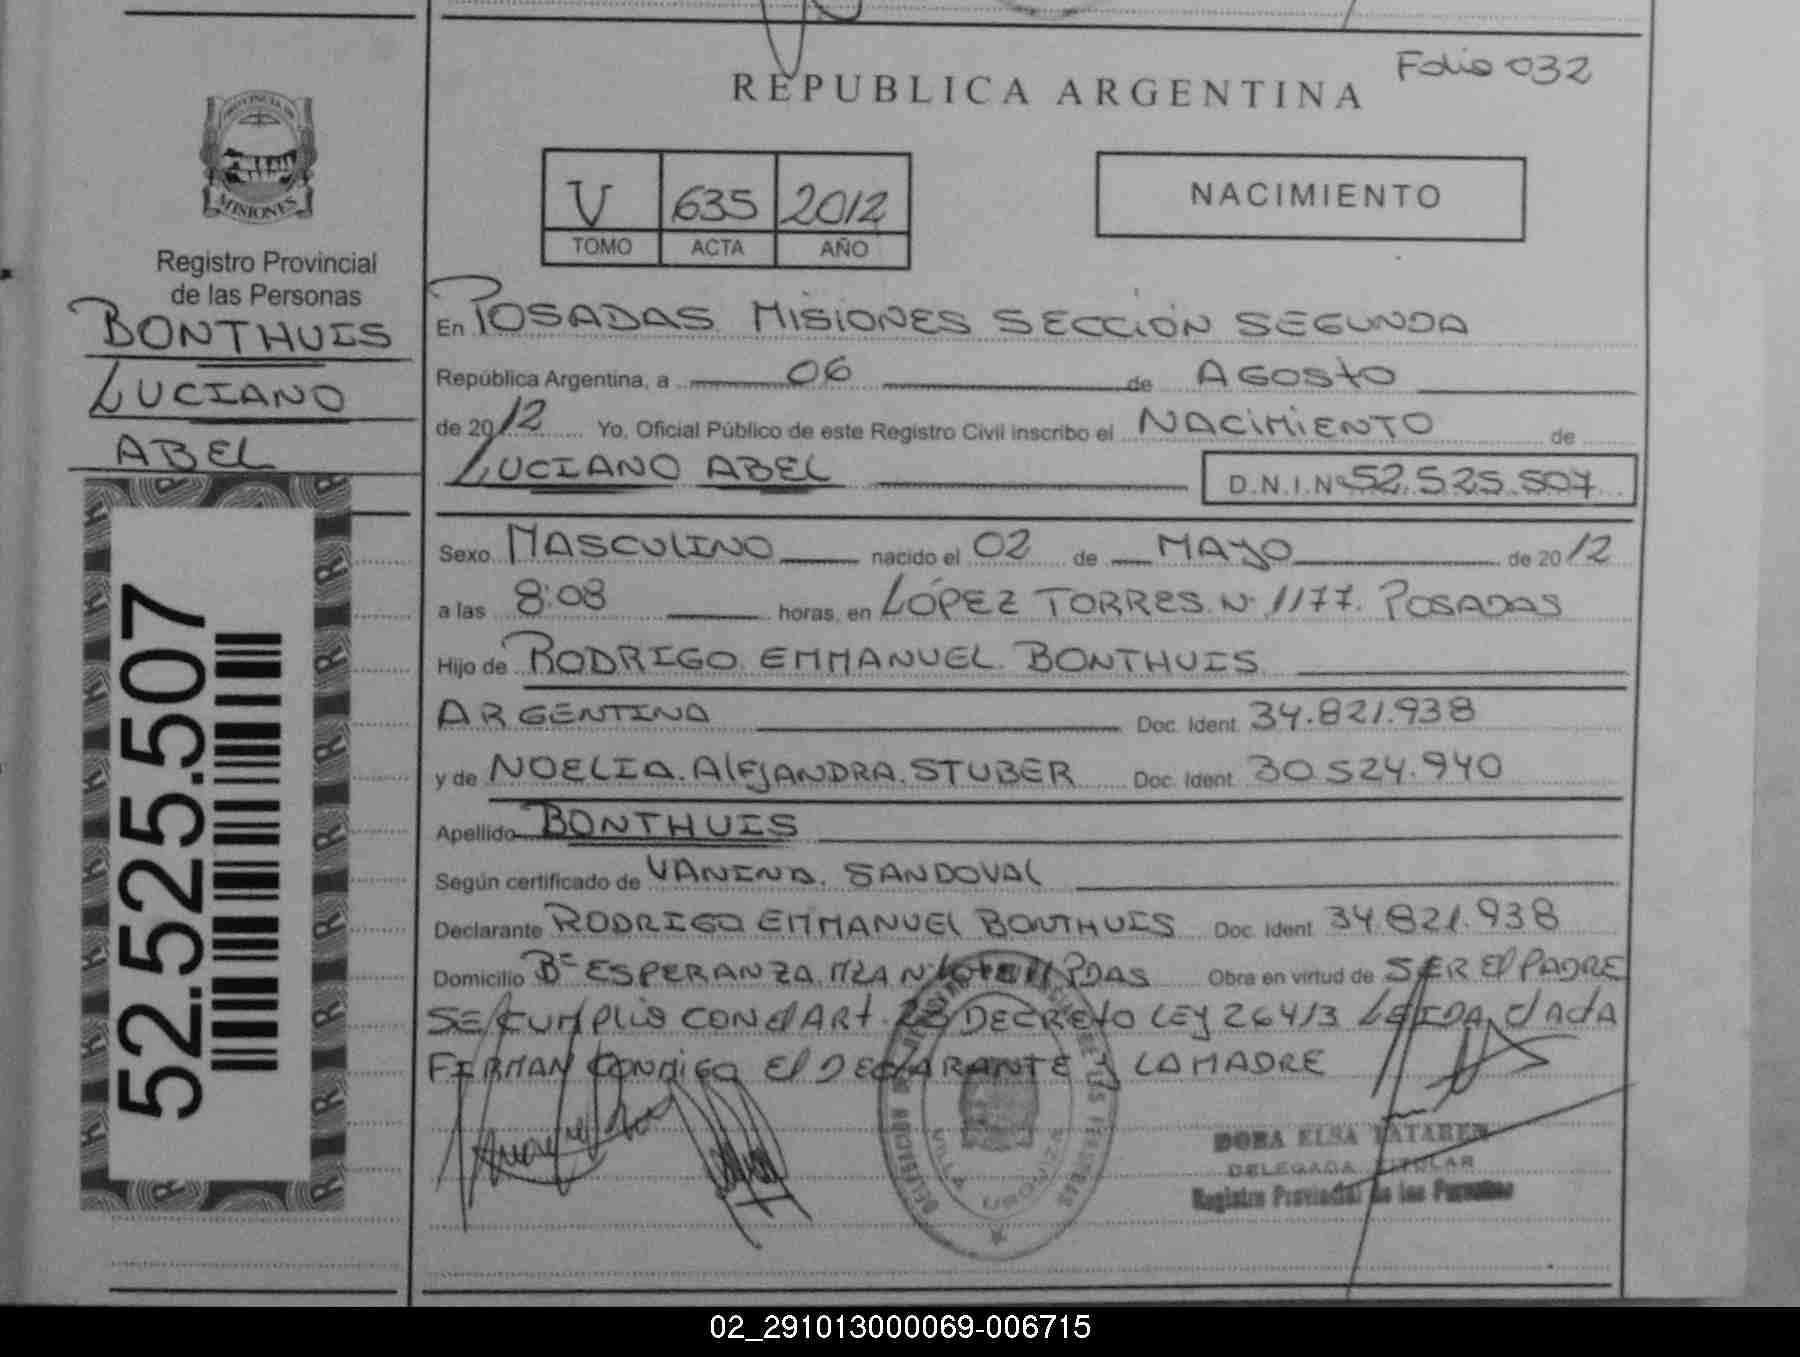 Folio 032
REPUBLICA ARGENTINA
PROVINCIA DE
MISIONES
Registro Provincial
de las Personas
BONTHUIS
LUCIANO
ABEL
52.525.507
V 635 2012
TOMO ACTA AÑO
NACIMIENTO
En POSADAS MISIONES SECCIÓN SEGUNDA
República Argentina, a 06 de AGOSTO
de 2012 Yo, Oficial Público de este Registro Civil inscribo el NACIMIENTO de
LUCIANO ABEL D.N.I.Nº 52.525.507
Sexo MASCULINO nacido el 02 de MAYO de 2012
a las 8:08 horas, en LÓPEZ TORRES. Nº 1177. POSADAS
Hijo de RODRIGO. EMMANUEL. BONTHUIS
ARGENTINA Doc. Ident. 34.821.938
y de NOELIA. ALEJANDRA. STUBER Doc. Ident. 30.524.940
Apellido BONTHUIS
Según certificado de VANINA. SANDOVAL
Declarante RODRIGO EMMANUEL BONTHUIS Doc. Ident. 34.821.938
Domicilio Bº ESPERANZA. MZA PDAS Obra en virtud de SER El PADRE
SE CUMPLIO CON El ART. DECRETO LEY 264/3 LEIDA El ActA
FIRMAN CONMIGO El DECLARANTE Y LA MADRE
VILLA URQUIZA
DORA ELSA
DELEGADA TITULAR
Registro Provincial de las Personas
02_291013000069-006715